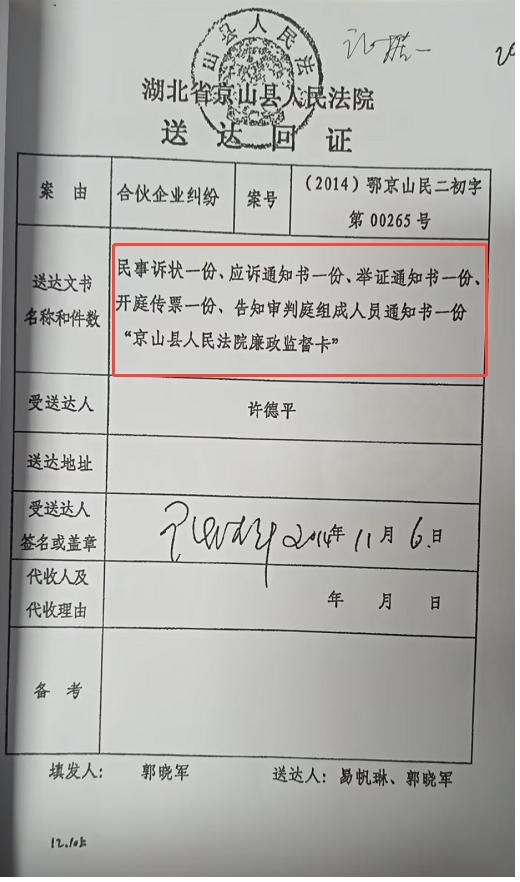 山县人民法
湖北省京山县人民法院
送达回证
案由 合伙企业纠纷 案号 (2014)鄂京山民二初字
第00265号
送达文书
名称和件数
民事诉状一份、应诉通知书一份、举证通知书一份、
开庭传票一份、告知审判庭组成人员通知书一份
“京山县人民法院廉政监督卡”
受送达人 许德平
送达地址
受送达人
签名或盖章
2014年11月6日
代收人及
代收理由
年 月 日
备考
填发人: 郭晓军 送达人: 易帆琳、郭晓军
12.10上